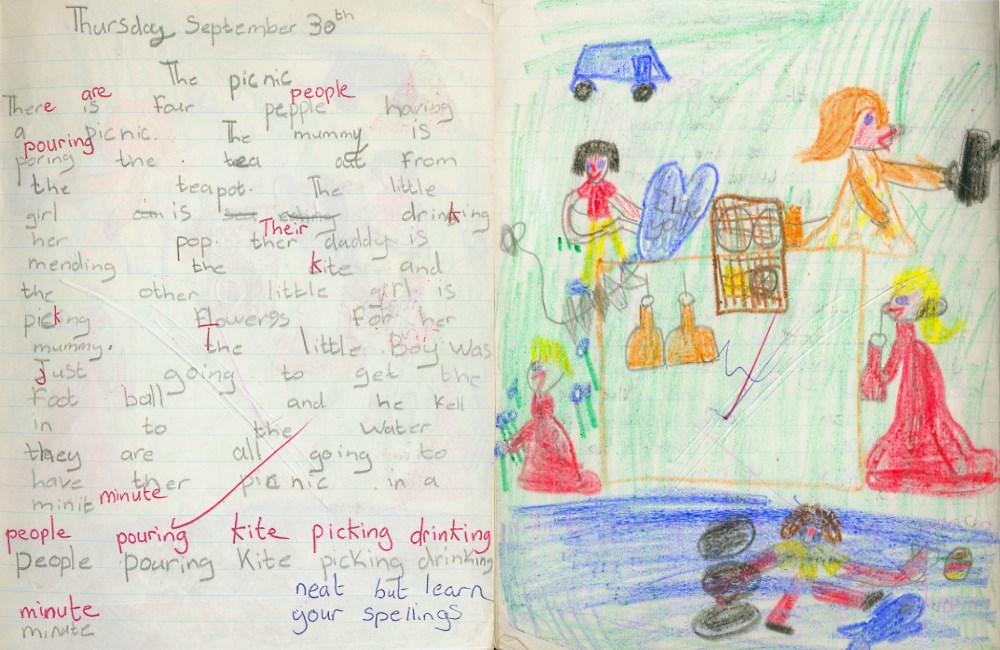 Thursday September 30th
The picnic
are people
There is four pepple having
a picnic. The mummy is
pouring
poring the tea out from
the teapot. The little
girl is drinking
Their
her pop. ther daddy is
mending the kite and
the other little girl is
picking flowers for her
mummy. The little Boy was
Just going to get the
foot ball and he fell
in to the water
they are all going to
have ther picnic in a
minit minute
people pouring kite picking drinking
People pouring Kite picking drinking
neat but learn
your spellings
minute
minute